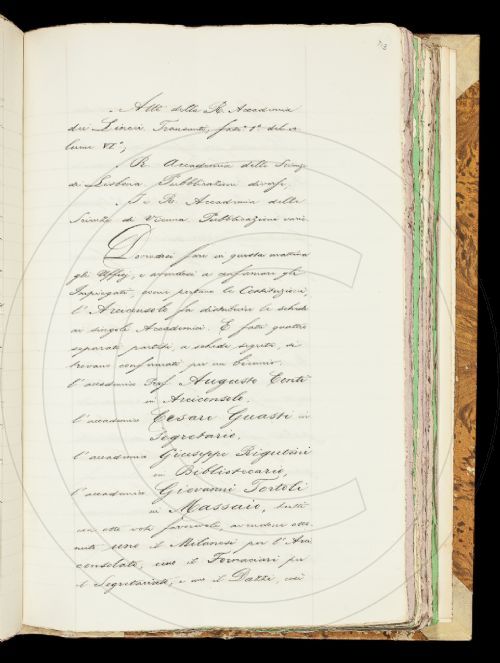 713
Atti della R. Accademia
dei Lincei, Transunti, fasc. 1º del vo
lume VIº;
R. Accademia delle Scienze
di Lisbona Pubblicazioni diverse.
I. e R. Accademia delle
Scienze di Vienna Pubblicazioni varie.
Dovendosi fare in questa mattina
gli Uffizj, e avendosi a confermare gli
Impiegati, come portano le Costituzioni,
l'Arciconsolo fa distribuire le schede
ai singoli Accademici. E fatti quattro
separati partiti a schede segrete, si
trovano confermati per un biennio:
l'accademico Prof. Augusto Conti
in Arciconsolo,
l'accademico Cesare Guasti in
Segretario,
l'accademico Giuseppe Rigutini
in Bibliotecario,
l'accademico Giovanni Tortoli
in Massaio, tutti
con otto voti favorevoli, avendone otte
nuti uno il Milanesi per l'Arci
consolato, uno il Fornaciari per
il Segretariato, e uno il Dazzi, così